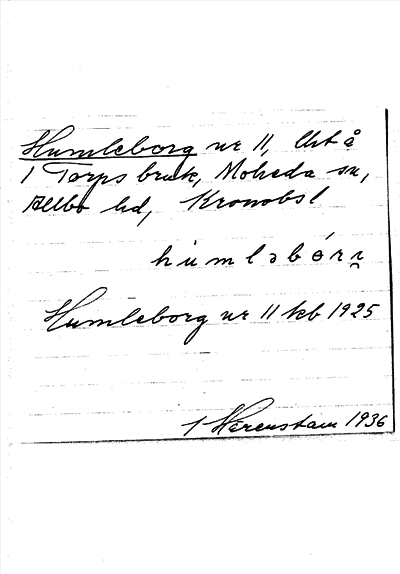 Humleborg nr 11, Urt å
1 Torps bruk, Moheda sn,
Allbo hd, Kronobsl
humləbórı̯
Humleborg nr 11 kb 1925
1 Herenstam 1936